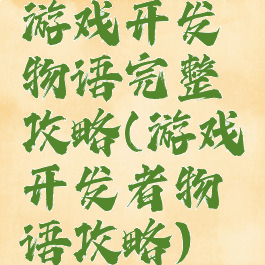 游戏开发
物语完整
攻略(游戏
开发者物
语攻略)